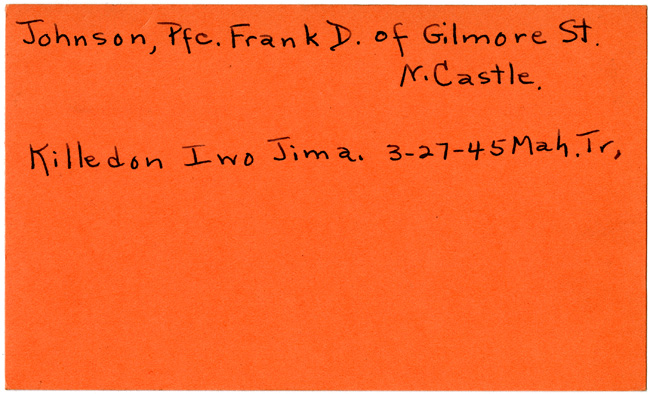 Johnson, Pfc. Frank D. of Gilmore St.
N. Castle.
Killed on Iwo Jima. 3-27-45 Mah. Tr,